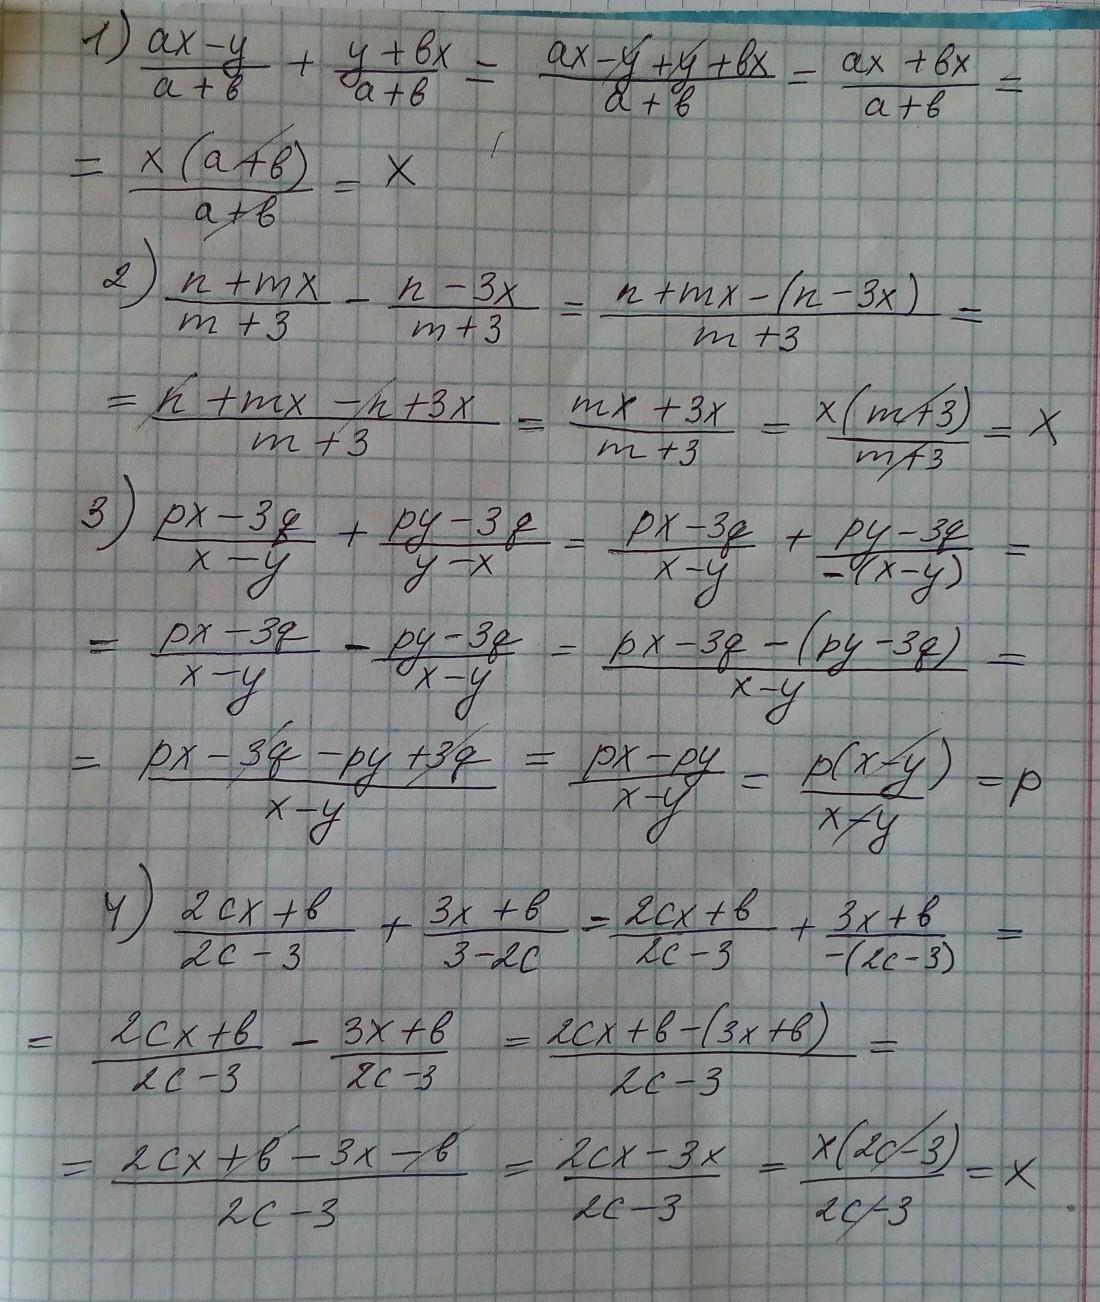 1) (ax-y)/(a+b) + (y+bx)/(a+b) = (ax-y+y+bx)/(a+b) = (ax+bx)/(a+b) =
= (x(a+b))/(a+b) = x
2) (n+mx)/(m+3) - (n-3x)/(m+3) = (n+mx-(n-3x))/(m+3) =
= (n+mx-n+3x)/(m+3) = (mx+3x)/(m+3) = (x(m+3))/(m+3) = x
3) (px-3q)/(x-y) + (py-3q)/(y-x) = (px-3q)/(x-y) + (py-3q)/(-(x-y)) =
= (px-3q)/(x-y) - (py-3q)/(x-y) = (px-3q-(py-3q))/(x-y) =
= (px-3q-py+3q)/(x-y) = (px-py)/(x-y) = (p(x-y))/(x-y) = p
4) (2cx+b)/(2c-3) + (3x+b)/(3-2c) = (2cx+b)/(2c-3) + (3x+b)/(-(2c-3)) =
= (2cx+b)/(2c-3) - (3x+b)/(2c-3) = (2cx+b-(3x+b))/(2c-3) =
= (2cx+b-3x-b)/(2c-3) = (2cx-3x)/(2c-3) = (x(2c-3))/(2c-3) = x